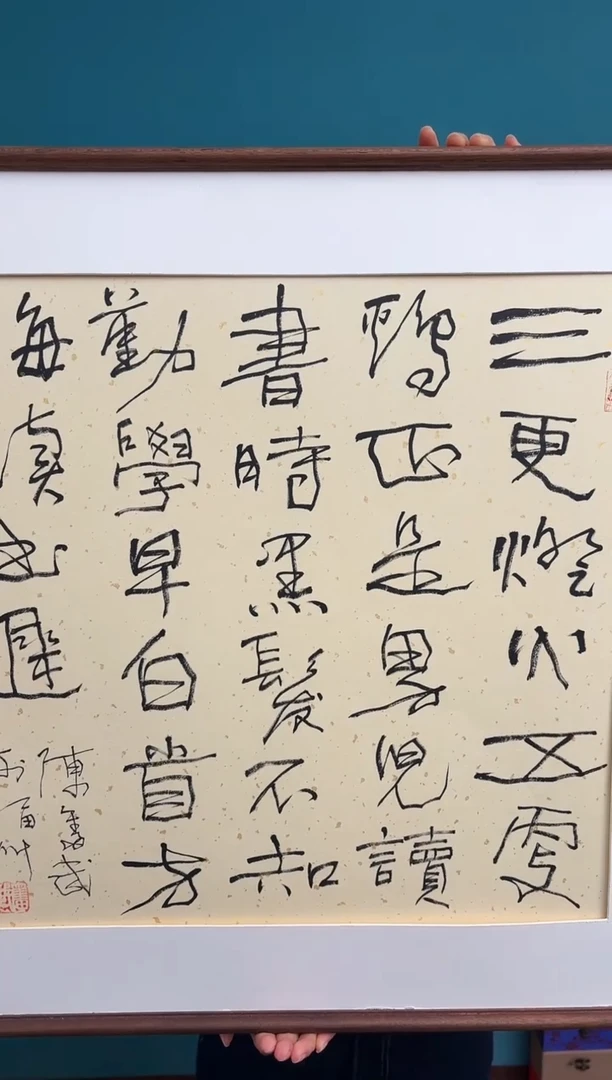 三更燈火五更
鷄正是男兒讀
書時黑髮不知
勤學早白首方
悔讀書遲
陳